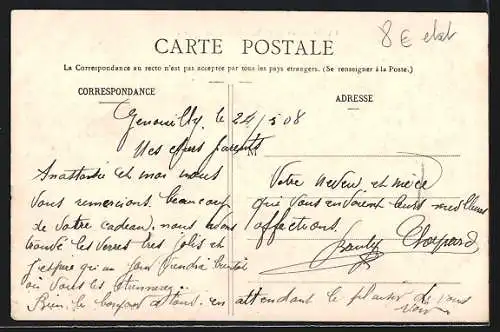 8 € etat
CARTE POSTALE
La Correspondance au recto n'est pas acceptée par tous les pays etrangers. (Se renseigner à la Poste.)
CORRESPONDANCE
ADRESSE
Genouilly, le 24/5 08
Mes chers parents
Anastasie et moi nous
vous remercions beaucoup
de votre cadeau, nous avons
trouvé les verres tres jolis et
j'espere qu'un jour viendra bientôt
où vous les
Bien le bonjour à tous. en attendant le plaisir de vous
voir
M
Votre neveu et nièce
que vous envoient leurs meilleures
affections.